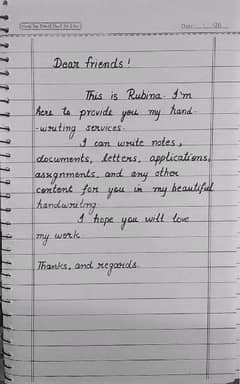 Date:
Dear friends!
This is Rubina. I'm
here to provide you my hand-
-writing services.
I can write notes,
documents, letters, applications,
assignments, and any other
content for you in my beautiful
handwriting.
I hope you will love
my work
Thanks, and regards.